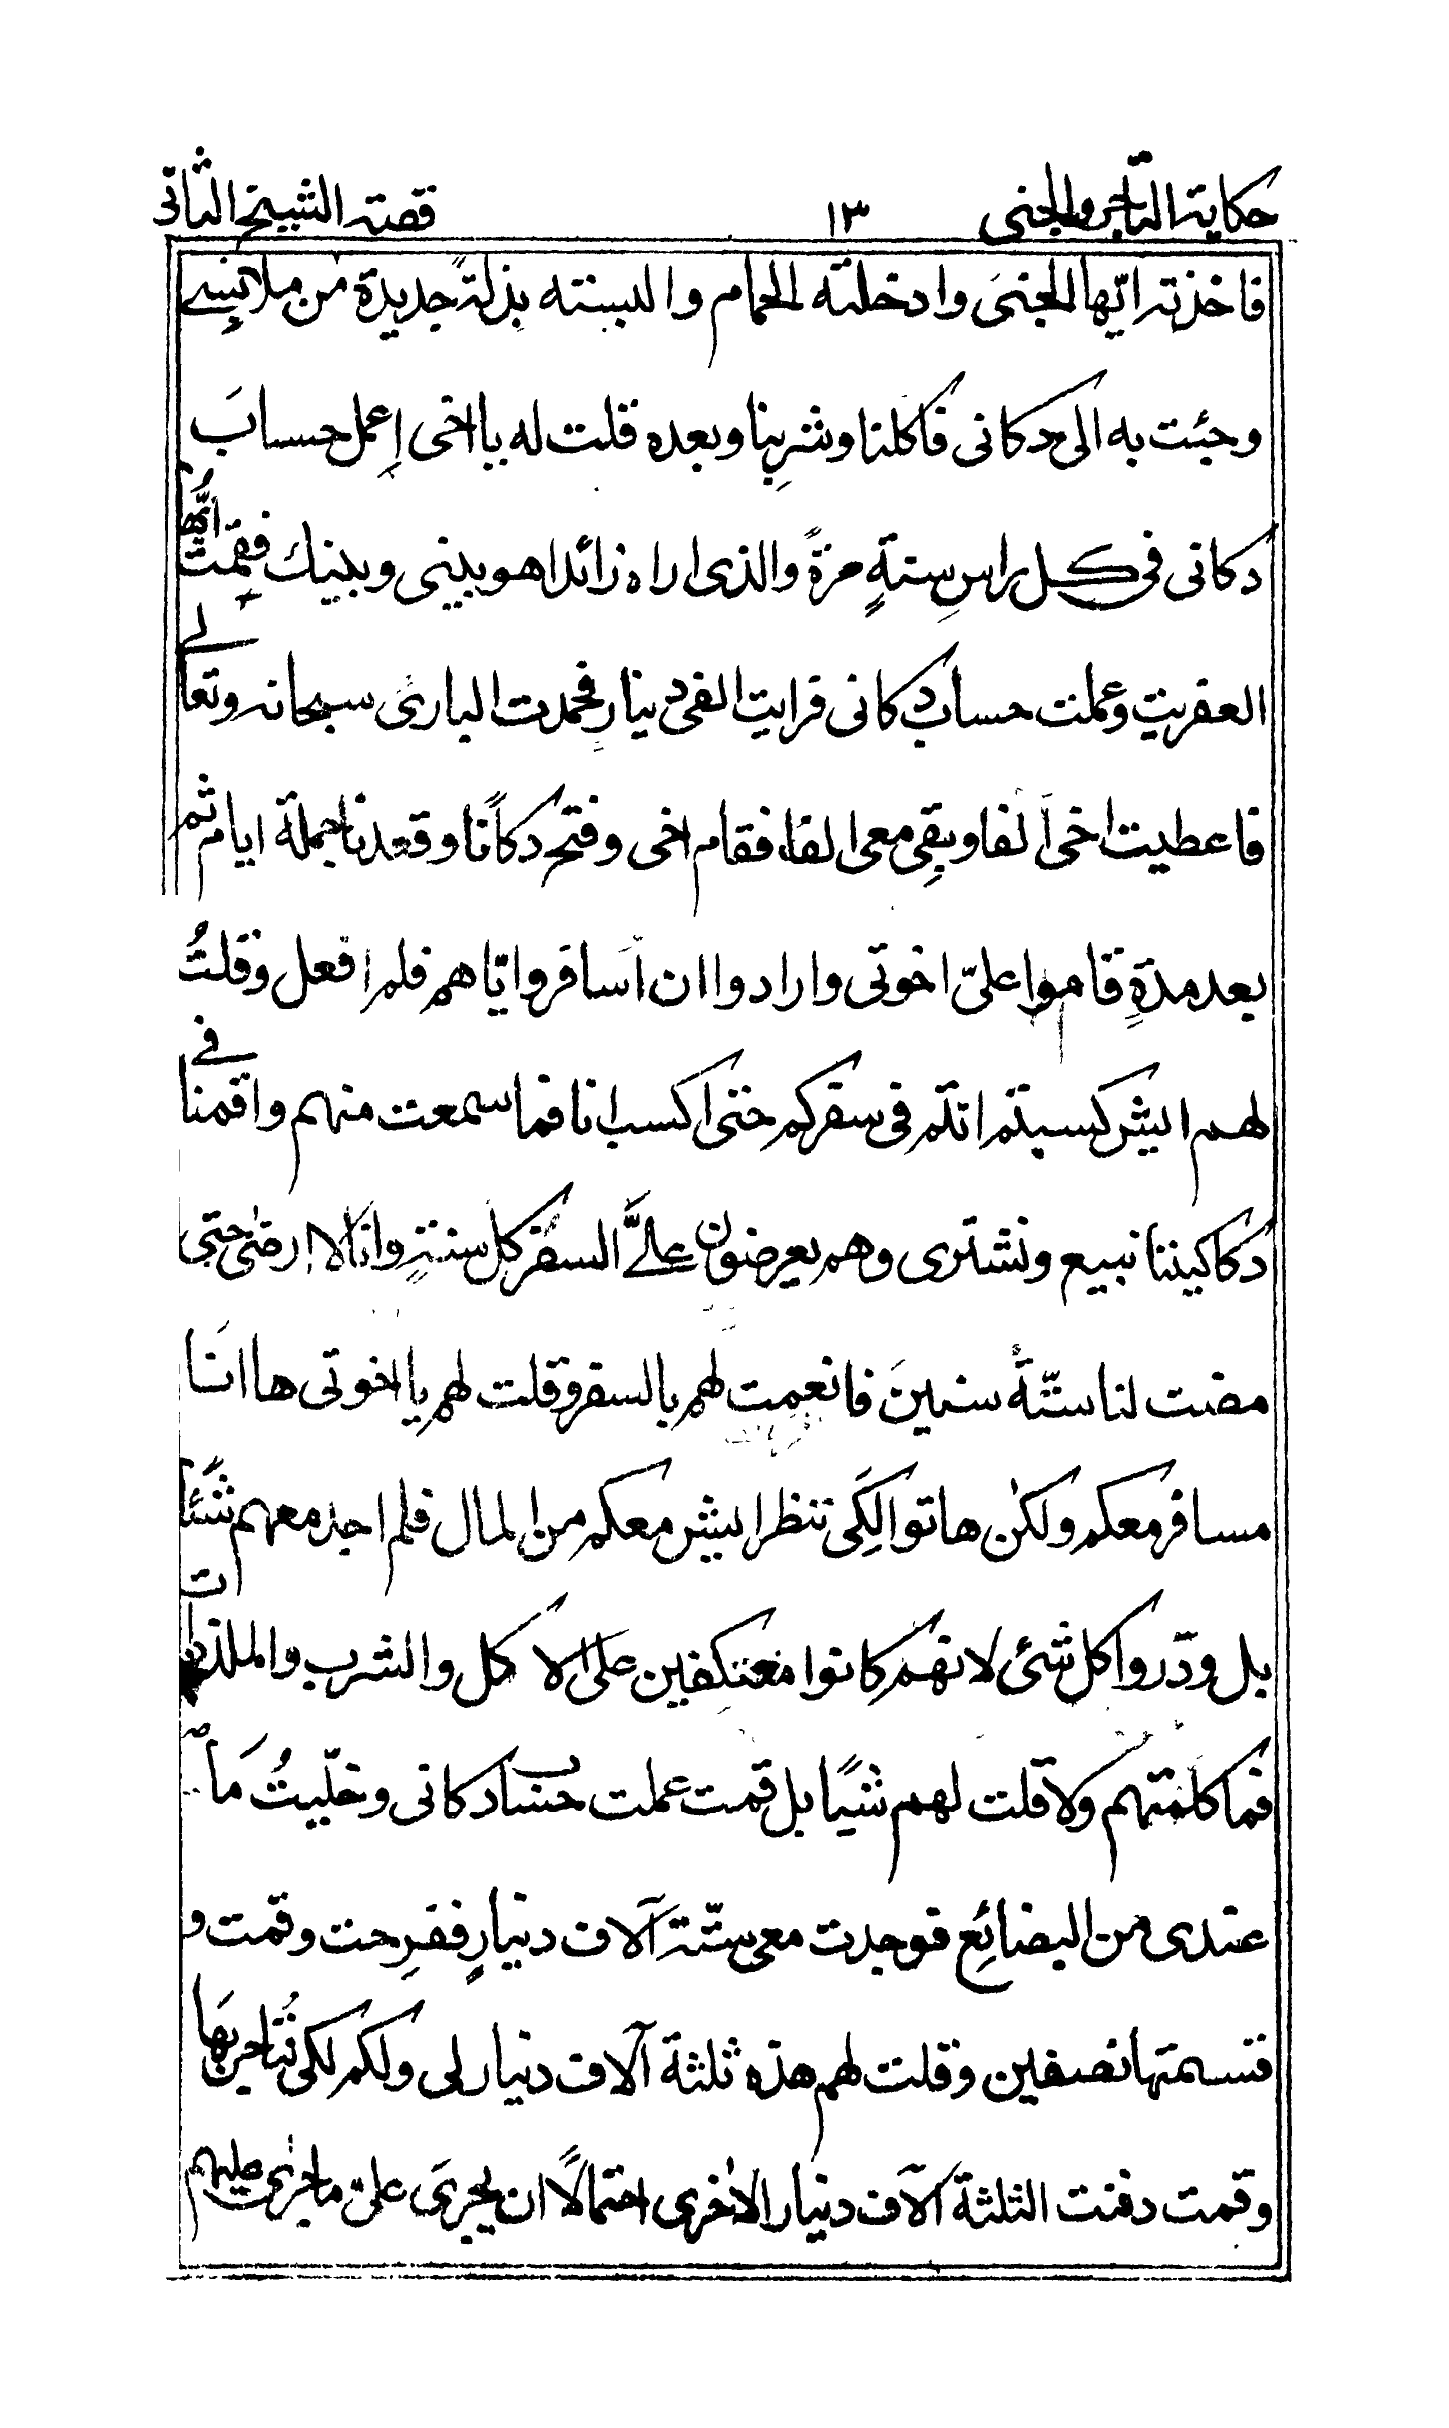 حكاية التاجر والجنى ١٣ قصة الشيخ الثانى
فاخذته ايّها الجنىَ وادخلته الحمام والبسته بذلةً جديدة من ملابسِے
وجئت به الى دكانى فاكلنا وشرِبنا وبعده قلت له يا اخى اِعمل حسابَ
دكانى فى كل راسِ سنةٍ مرةً والذى اراه زائدا هو بينى وبينك فقِمتُ ايّها
العفريت وعملت حساب دكانى فرايت الفى دينارٍ فحمدت البارئ سبحانه وتعالے
فاعطيت اخى الفا وبقِى معى الفا، فقام اخى وفتح دكانًا وقعدنا جملة ايام ثم
بعد مدةٍ قاموا علىّ اخوتى وارادوا ان اسافر واياهم فلم افعل وقلتُ
لهم ايش كسبتم انتم فى سفركم حتى اكسب انا فما سمعت منهم واقمنا فے
دكاكيننا نبيع ونشترى وهم يعرضون علےَّ السفر كل سنةٍ وانا لا ارضٰى حتى
مضت لنا ستّةُ سنينَ فانعمت لهم بالسفر وقلت لهم يا اخوتى ها انَا
مسافر معكم ولكن هاتوا لِكَى ننظر ايش معكم من المال فلم اجد معهم شَئًا
بل ودّروا كل شئ لانهم كانوا معتكفين على الاكل والشرب والملذذات
فما كلمتهم ولا قلت لهم شيًا بل قمت عملت حساب دكانى وخلّيتُ مَا
عندى من البضائِع فوجدت معى ستّة آلاف دينارٍ ففرِحت وقمت و
قسمتها نصفين وقلت لهم هذه ثلثة آلاف دينار لى ولكم لكى نُتاجر بهَا
وقمت دفنت الثلثة آلاف دينار الاخرى احتمالًا ان يجرىَ علىّ ما جرٰى عليهم